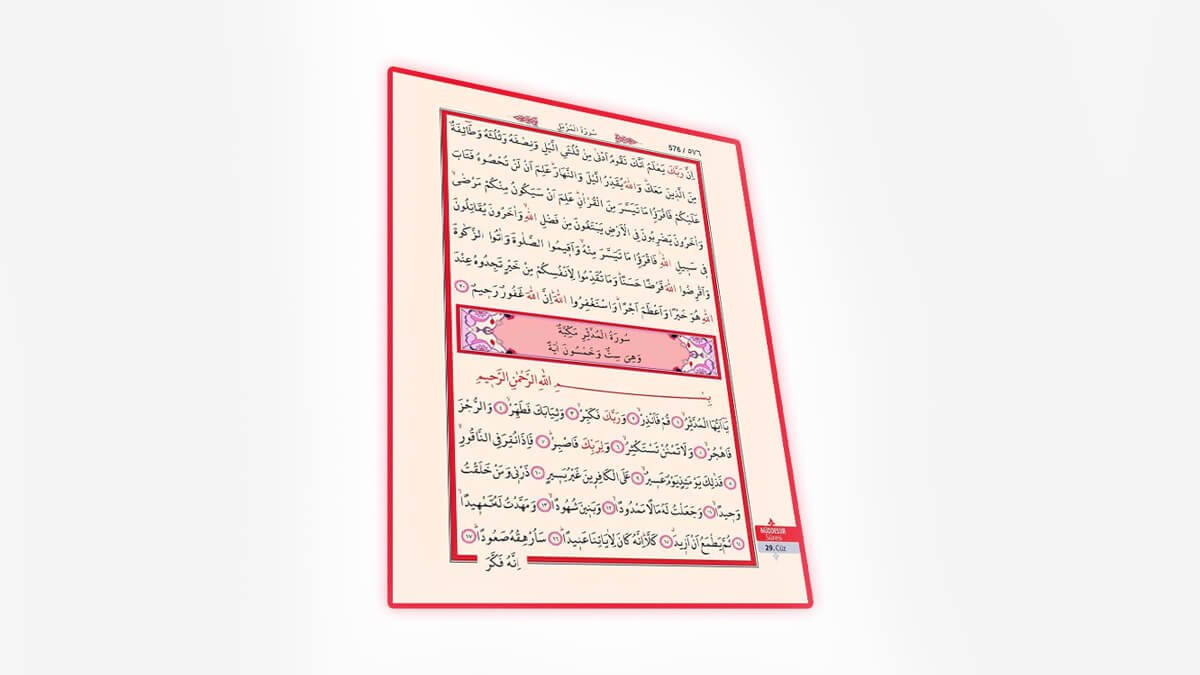 سُورَةُ الْمُزَّمِّلِ
576 / ٥٧٦
اِنَّ رَبَّكَ يَعْلَمُ اَنَّكَ تَقُومُ اَدْنٰى مِنْ ثُلُثَيِ الَّيْلِ وَنِصْفَهُ وَثُلُثَهُ وَطَٓائِفَةٌ
مِنَ الَّذ۪ينَ مَعَكَۜ وَاللّٰهُ يُقَدِّرُ الَّيْلَ وَالنَّهَارَۜ عَلِمَ اَنْ لَنْ تُحْصُوهُ فَتَابَ
عَلَيْكُمْ فَاقْرَؤُ۫ا مَا تَيَسَّرَ مِنَ الْقُرْاٰنِۜ عَلِمَ اَنْ سَيَكُونُ مِنْكُمْ مَرْضٰىۙ
وَاٰخَرُونَ يَضْرِبُونَ فِي الْاَرْضِ يَبْتَغُونَ مِنْ فَضْلِ اللّٰهِۙ وَاٰخَرُونَ يُقَاتِلُونَ
ف۪ي سَب۪يلِ اللّٰهِۘ فَاقْرَؤُ۫ا مَا تَيَسَّرَ مِنْهُۙ وَاَق۪يمُوا الصَّلٰوةَ وَاٰتُوا الزَّكٰوةَ
وَاَقْرِضُوا اللّٰهَ قَرْضًا حَسَنًاۜ وَمَا تُقَدِّمُوا لِاَنْفُسِكُمْ مِنْ خَيْرٍ تَجِدُوهُ عِنْدَ
اللّٰهِ هُوَ خَيْرًا وَاَعْظَمَ اَجْرًاۜ وَاسْتَغْفِرُوا اللّٰهَۜ اِنَّ اللّٰهَ غَفُورٌ رَح۪يمٌ ٢٠
سُورَةُ الْمُدَّثِّرِ مَكِّيَّةٌ
وَهِيَ سِتٌّ وَخَمْسُونَ اٰيَةً
بِسْمِ اللّٰهِ الرَّحْمٰنِ الرَّح۪يمِ
يَٓا اَيُّهَا الْمُدَّثِّرُۙ ١ قُمْ فَاَنْذِرْۙ ٢ وَرَبَّكَ فَكَبِّرْۙ ٣ وَثِيَابَكَ فَطَهِّرْۙ ٤ وَالرُّجْزَ
فَاهْجُرْۙ ٥ وَلَا تَمْنُنْ تَسْتَكْثِرُۙ ٦ وَلِرَبِّكَ فَاصْبِرْۜ ٧ فَاِذَا نُقِرَ فِي النَّاقُورِۙ
٨ فَذٰلِكَ يَوْمَئِذٍ يَوْمٌ عَس۪يرٌۙ ٩ عَلَى الْكَافِر۪ينَ غَيْرُ يَس۪يرٍ ١٠ ذَرْن۪ي وَمَنْ خَلَقْتُ
وَح۪يدًاۙ ١١ وَجَعَلْتُ لَهُ مَالًا مَمْدُودًاۙ ١٢ وَبَن۪ينَ شُهُودًاۙ ١٣ وَمَهَّدْتُ لَهُ تَمْه۪يدًاۙ
١٤ ثُمَّ يَطْمَعُ اَنْ اَز۪يدَۗ ١٥ كَلَّاۜ اِنَّهُ كَانَ لِاٰيَاتِنَا عَن۪يدًاۜ ١٦ سَاُرْهِقُهُ صَعُودًاۜ ١٧
اِنَّهُ فَكَّرَ
MÜDDESSİR
Sûresi
29. Cüz